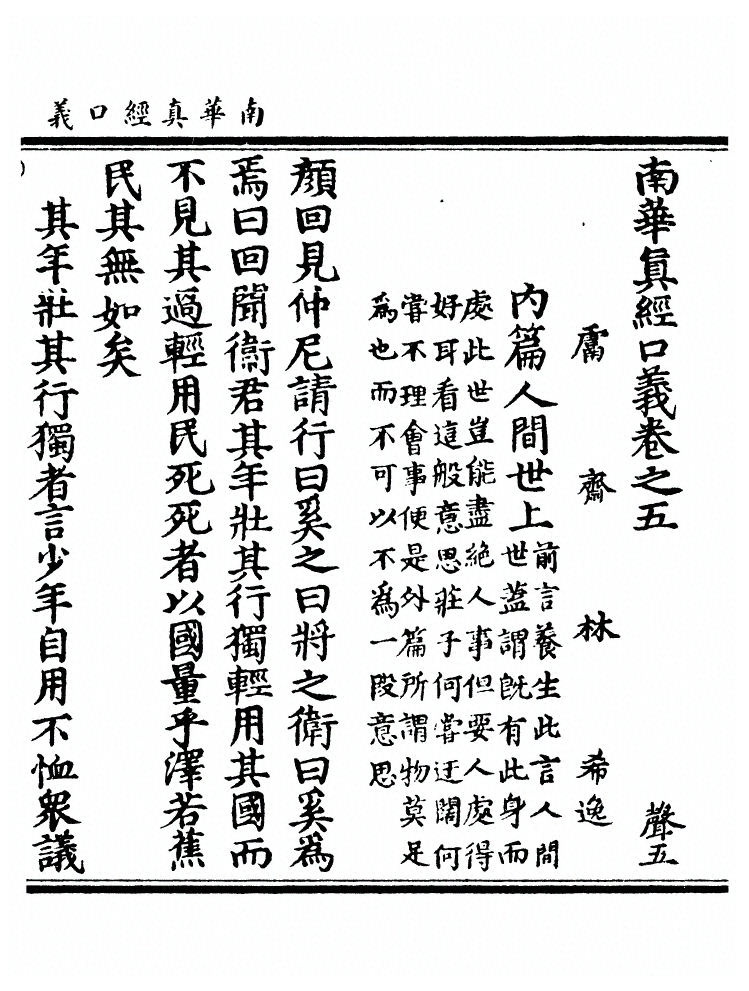 南華真經口義
南華眞經口義卷之五 聲五
鬳齋林希逸
內篇人間世上 前言養生此言人間
世蓋謂旣有此身而
處此世豈能盡絕人事但要人處得
好耳看這般意思莊子何嘗迂闊何
嘗不理會事便是外篇所謂物莫足
爲也而不可以不爲一段意思
顏回見仲尼請行曰奚之曰將之衛曰奚爲
焉曰回聞衛君其年壯其行獨輕用其國而
不見其過輕用民死死者以國量乎澤若蕉
民其無如矣
其年壯其行獨者言少年自用不恤衆議